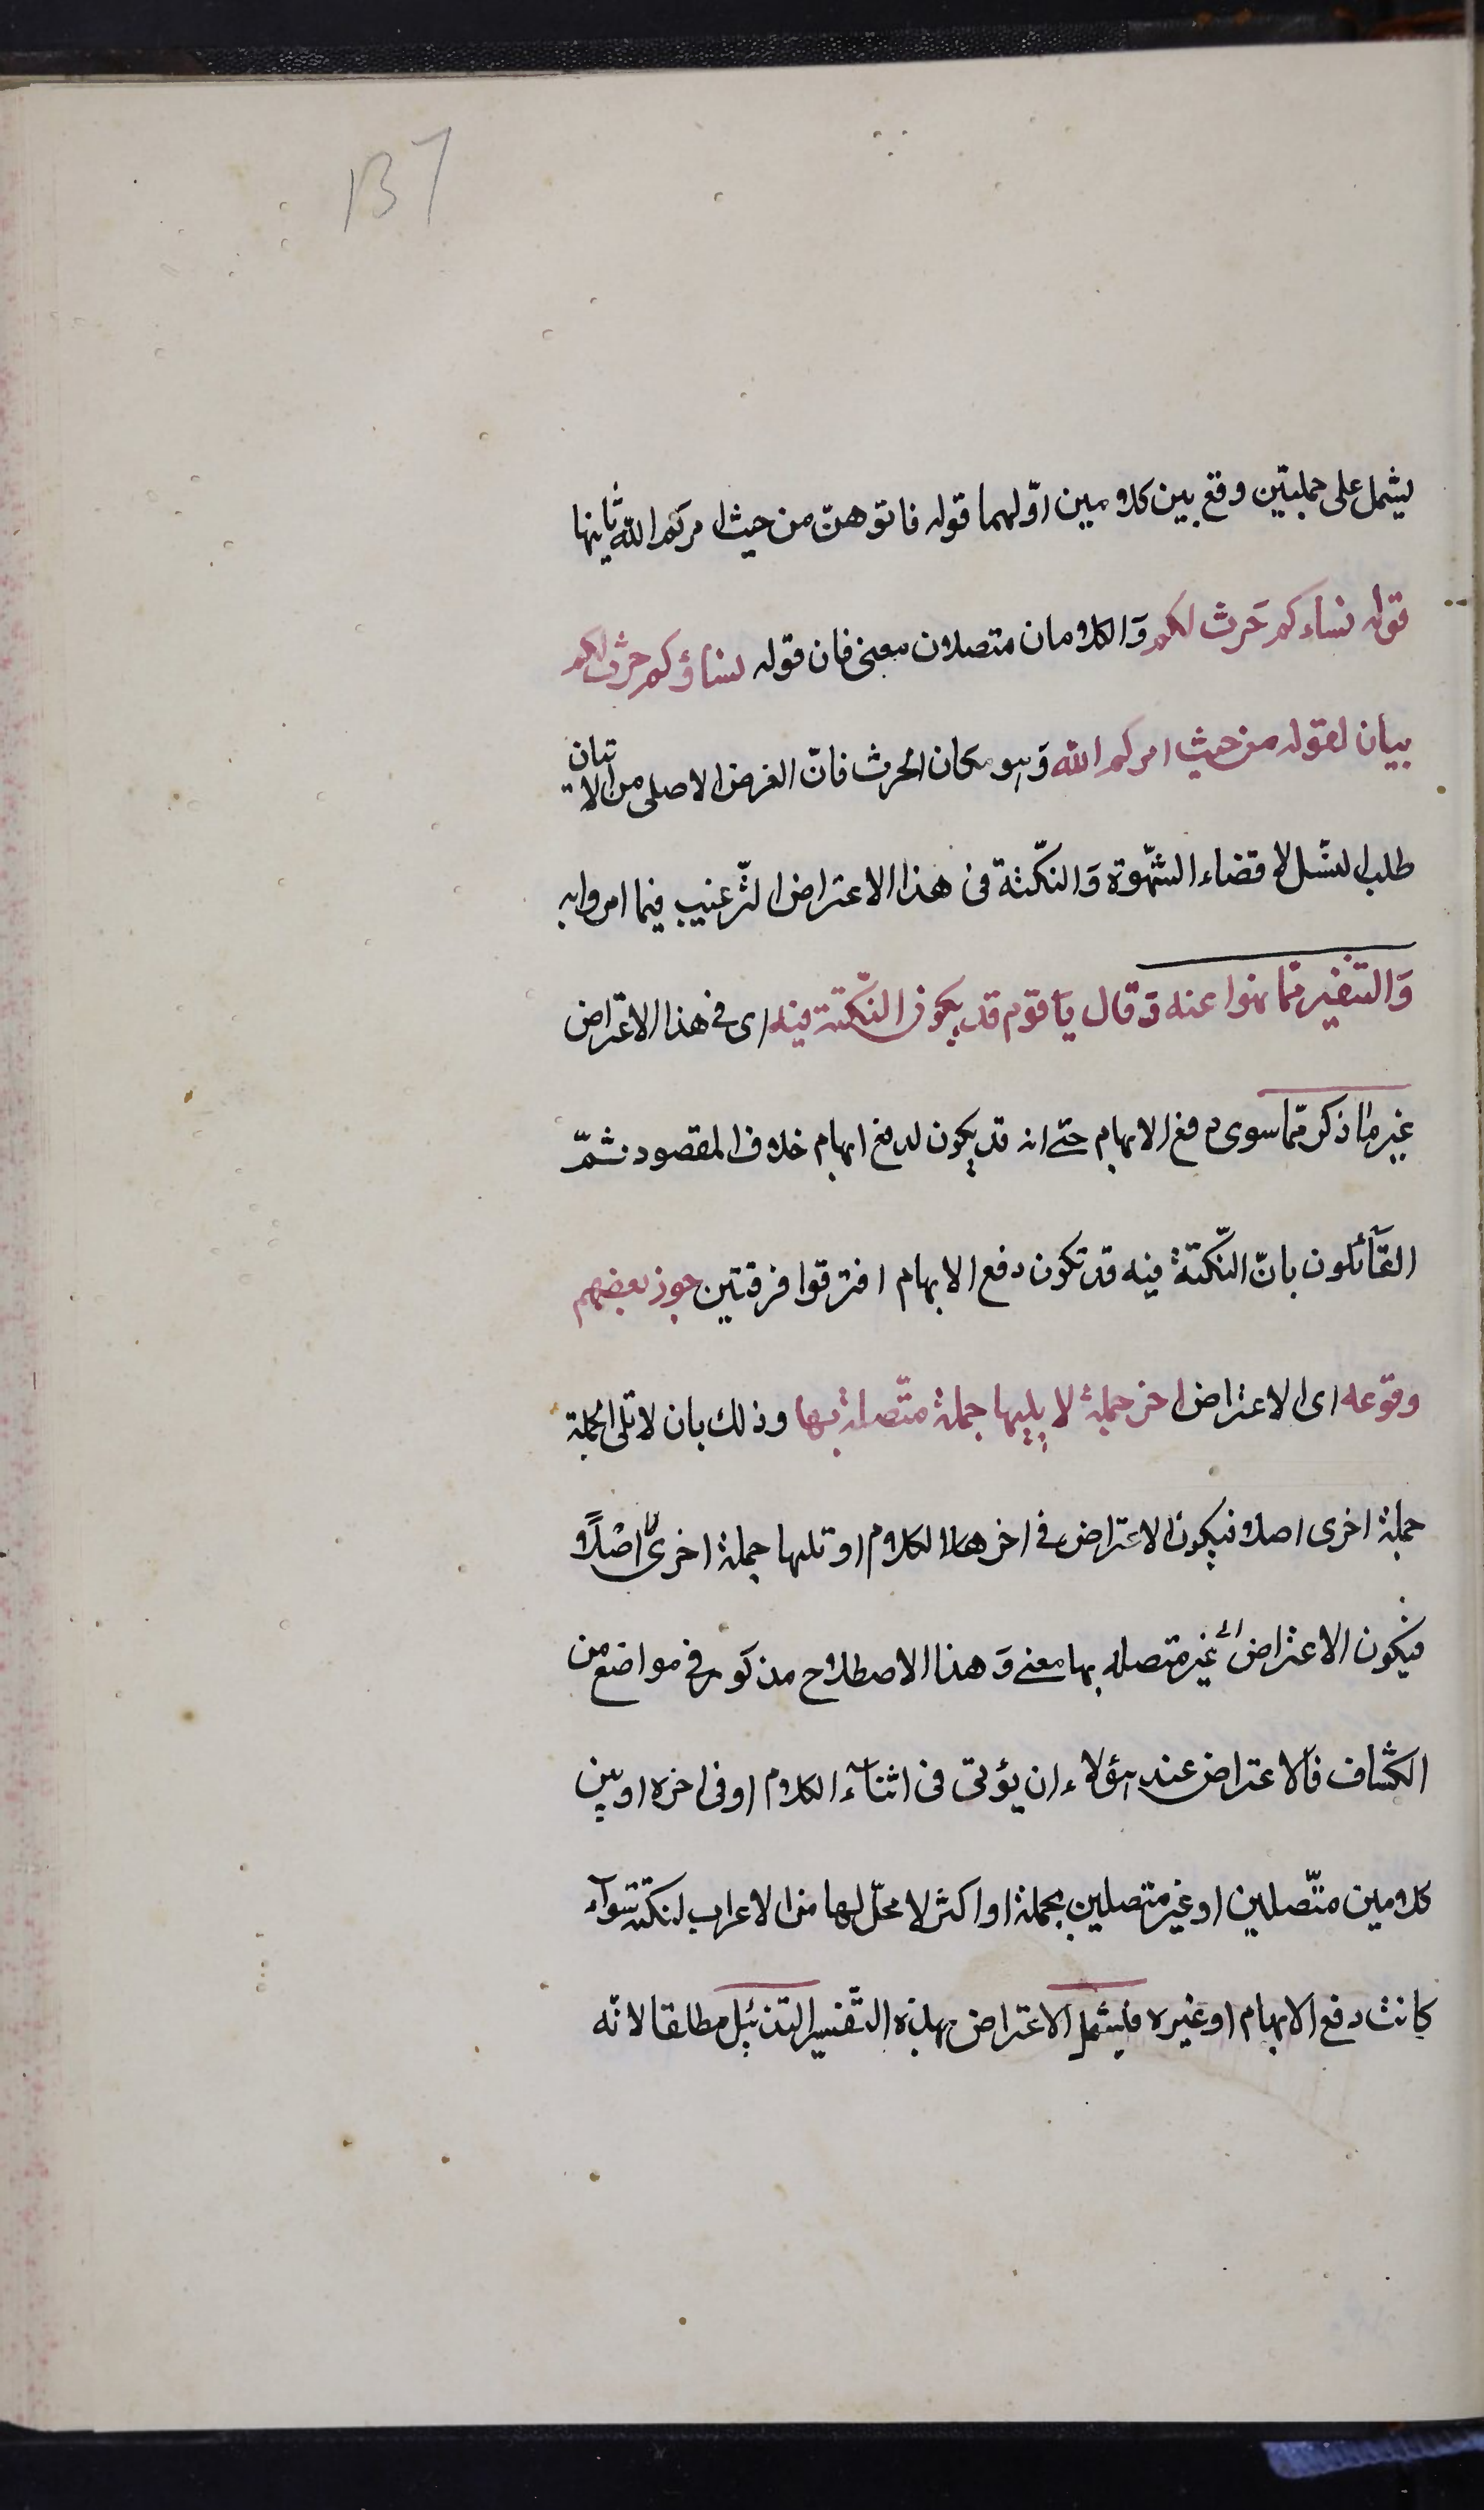 137
يشمل على جملتين وقع بين كلامين اوّلهما قوله فاتوهنّ من حيث امركم الله ثانيها
قوله نساءكم حَرث لكم وَالكلامان متصلان معنى فان قوله نساؤكم حرث لكم
بيان لقوله من حيث امركم الله وَهو مكان الحرث فانّ الغرض الاصلى من الاتيان
طلب النسّل لا قضاء الشّهوة وَالنكّتة فى هذا الاعتراض الترّغيب فيما امروا به
وَالتنفير ممّا نهوا عنه وَقال يا قوم قد يكون النّكتة فيه اى فى هذا الاعتراض
غير ما ذكر ممّا سوى دفع الايهام حتى انه قد يكون لدفع ايهام خلاف المقصود ثمّ
القآئلون بانّ النّكتة فيه قد تكون دفع الايهام افترقوا فرقتين جوز بعضهم
وقوعه اى الاعتراض اخر جملة لا يليها جملة متّصلة بها وذلك بان لا تلى الجملة
جملة اخرى اصلا فيكون الاعتراض فى اخر الكلام او تلها جملة اخرى اصلاً
فيكون الاعتراض غير متصله بها معنى وَهذا الاصطلاح مذكور فى مواضع من
الكشّاف فالاعتراض عند هؤلاء ان يؤتى فى اثنآء الكلام او فى اخره او بين
كلامين متّصلين او غير متصلين بجملة او اكثر لا محلّ لها من الاعراب لنكتة سوآء
كانت دفع الايهام او غيره فيشمل الاعتراض بهذه التّفسير التذئيل مطلقا لانّه